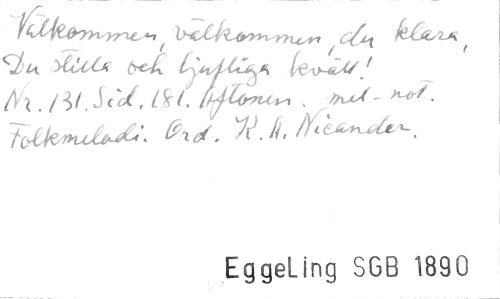 Välkommen, välkommen, du klara,
Du stilla och ljufliga kväll!
Nr. 131. Sid. 181. Aftonen. mel-not.
Folkmelodi. Ord. K. A. Nicander.
EggeLing SGB 1890